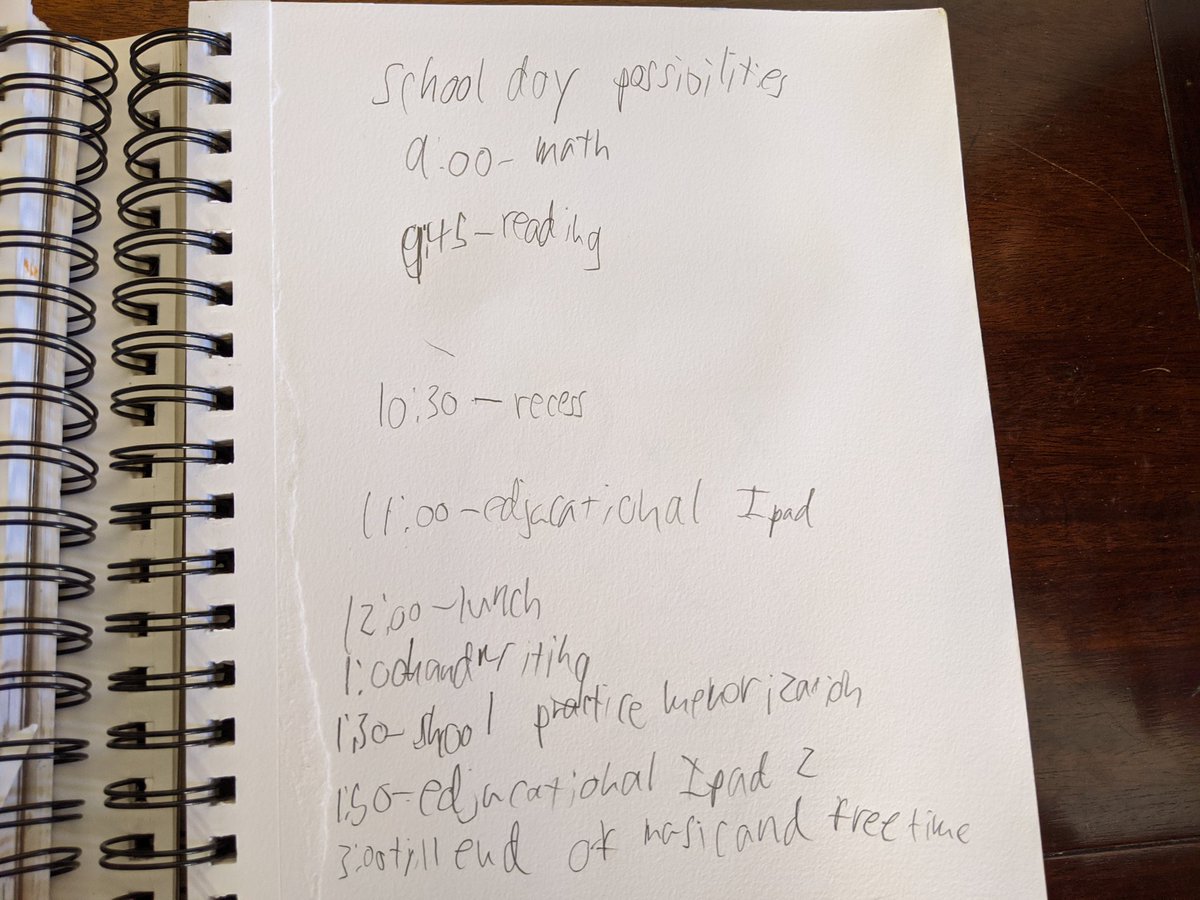 school day possibilities
9:00- math
9:45-reading
10:30-recess
11:00-edjucational Ipad
12:00-lunch
1:00handwriting
1:30-shool practice memorization
1:50-edjucational Ipad 2
3:00till end of masic and free time